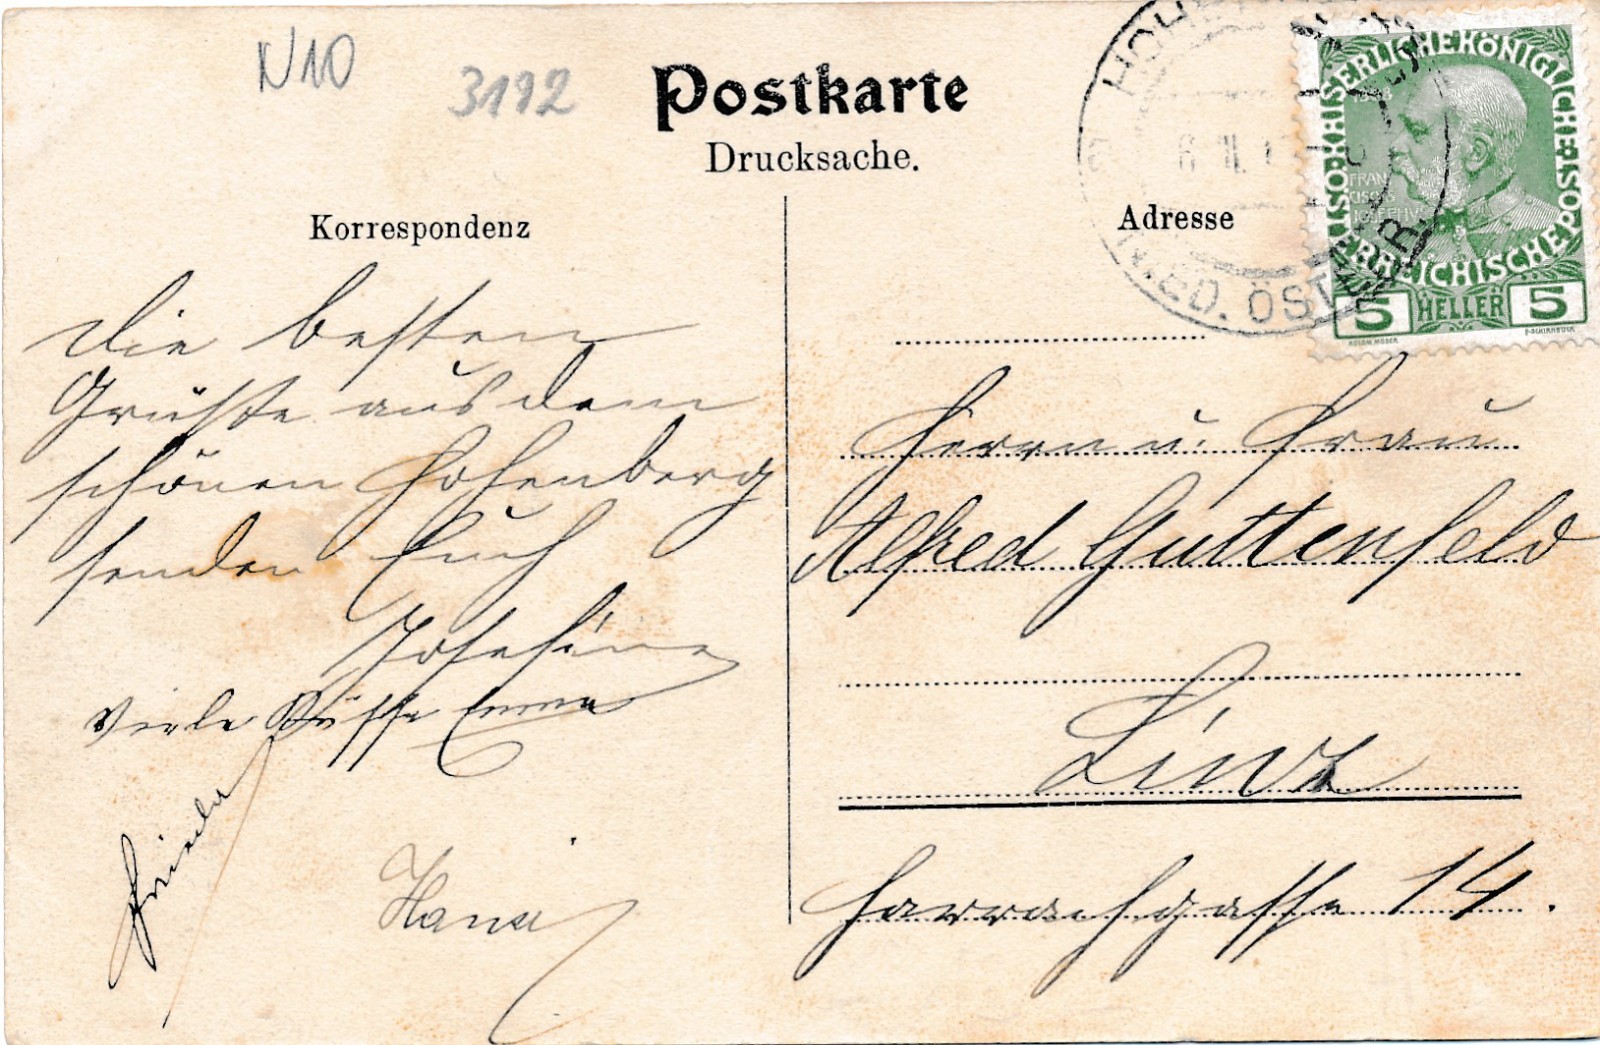 N10
3192
Postkarte
Drucksache.
Korrespondenz
Adresse
HOH
NIED. ÖSTERR.
KAISERLICHE KÖNIGLICHE ÖSTERREICHISCHE POST
1908
FRAN
CISCUS
IOSEPHVS
5 HELLER 5
KOLOM. MOSER
F. SCHIRNBÖCK
Die besten
Grüße aus dem
schönen Hohenberg
senden Euch
Josefine
Viele Küsse Emma
Hansi
Herrn u. Frau
Alfred Guttenfeld
Linz
Harrachgasse 14.